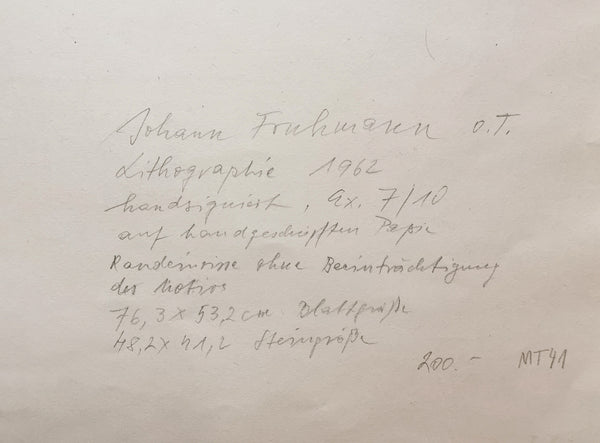 Johann Fruhmann o.T.
Lithographie 1962
handsigniert, Ex. 7/10
auf handgeschöpften Papier
Randeinrisse ohne Beeinträchtigung
des Motivs
76,3 x 53,2 cm Blattgröße
48,2 x 41,2 Steingröße
200.- MT41